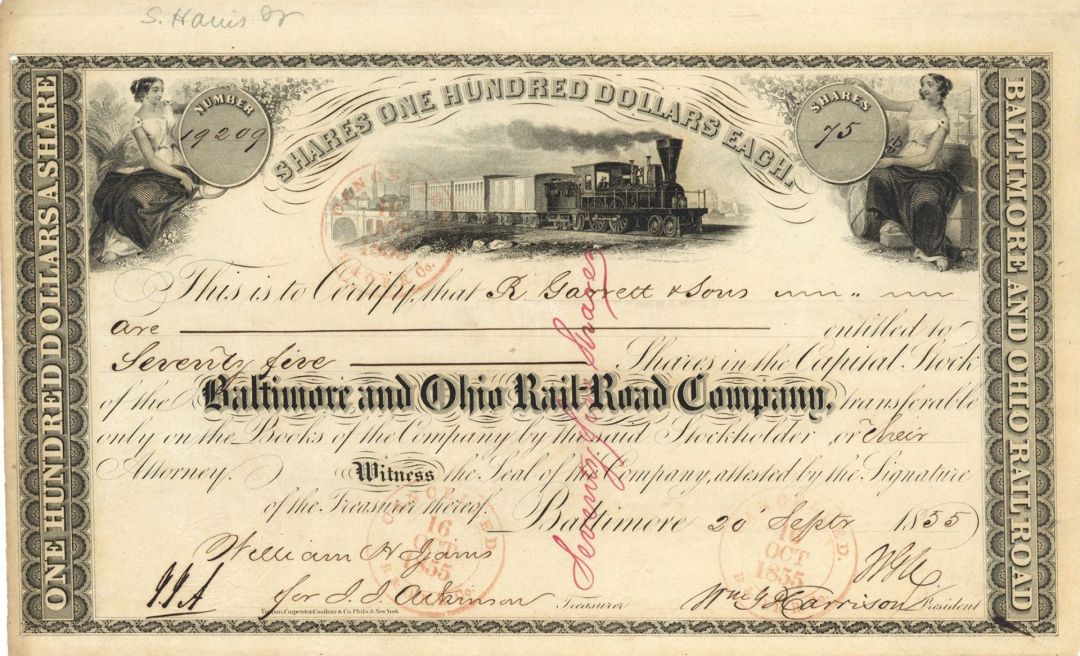 S. Harris Jr
ONE HUNDRED DOLLARS A SHARE
NUMBER
19209
SHARES ONE HUNDRED DOLLARS EACH.
SHARES
75
BALTIMORE AND OHIO RAIL ROAD
This is to Certify, that R Garrett & Sons
are entitled to
Seventy five Shares in the Capital Stock
of the Baltimore and Ohio Rail-Road Company, transferable
only on the Books of the Company by the said Stockholder or their
Attorney. Witness the Seal of the Company, attested by the Signature
of the Treasurer thereof. Baltimore 20 Septr 1855
Seventy five Shares
CANCELLED
16
OCT
1855
CANCELLED.
16
OCT
1855
William H Ijams
for J. J. Atkinson Treasurer Wm G Harrison President
JJA
WGH
Toppan, Carpenter, Casilear & Co. Phila. & New York